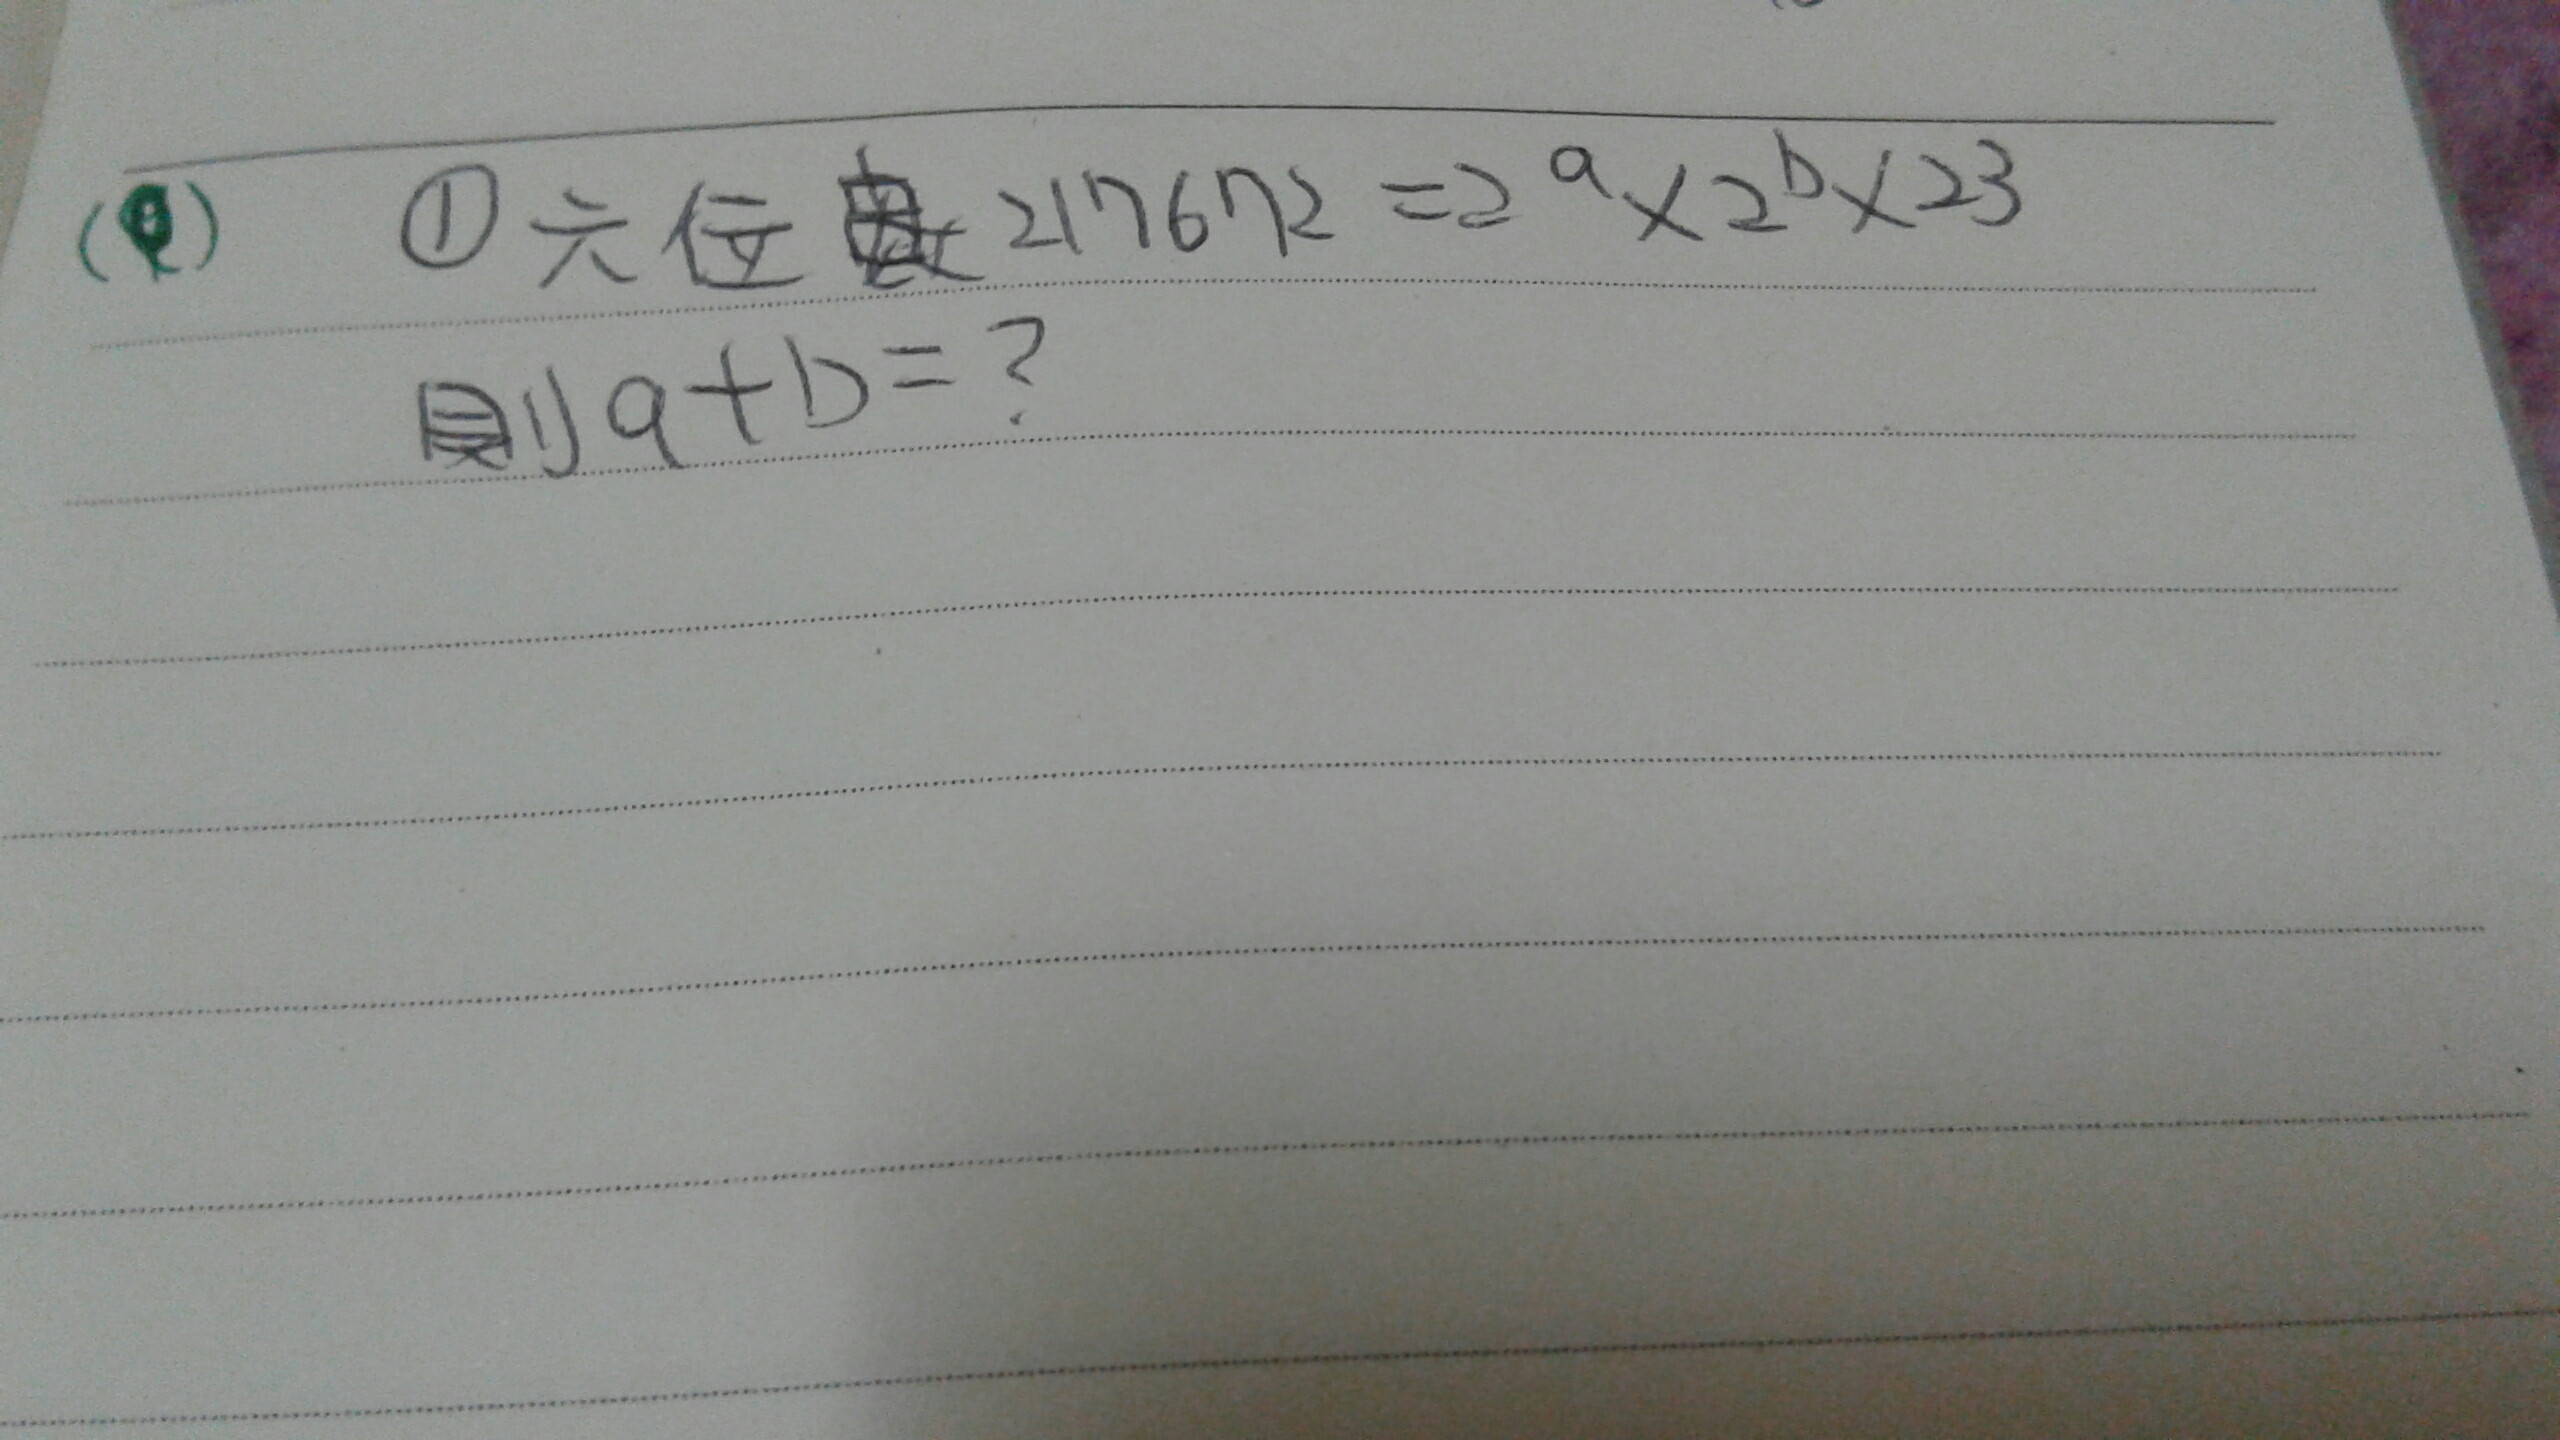 (Q) ① 六位數 217672 = 2ᵃ × 2ᵇ × 23
則 a + b = ?